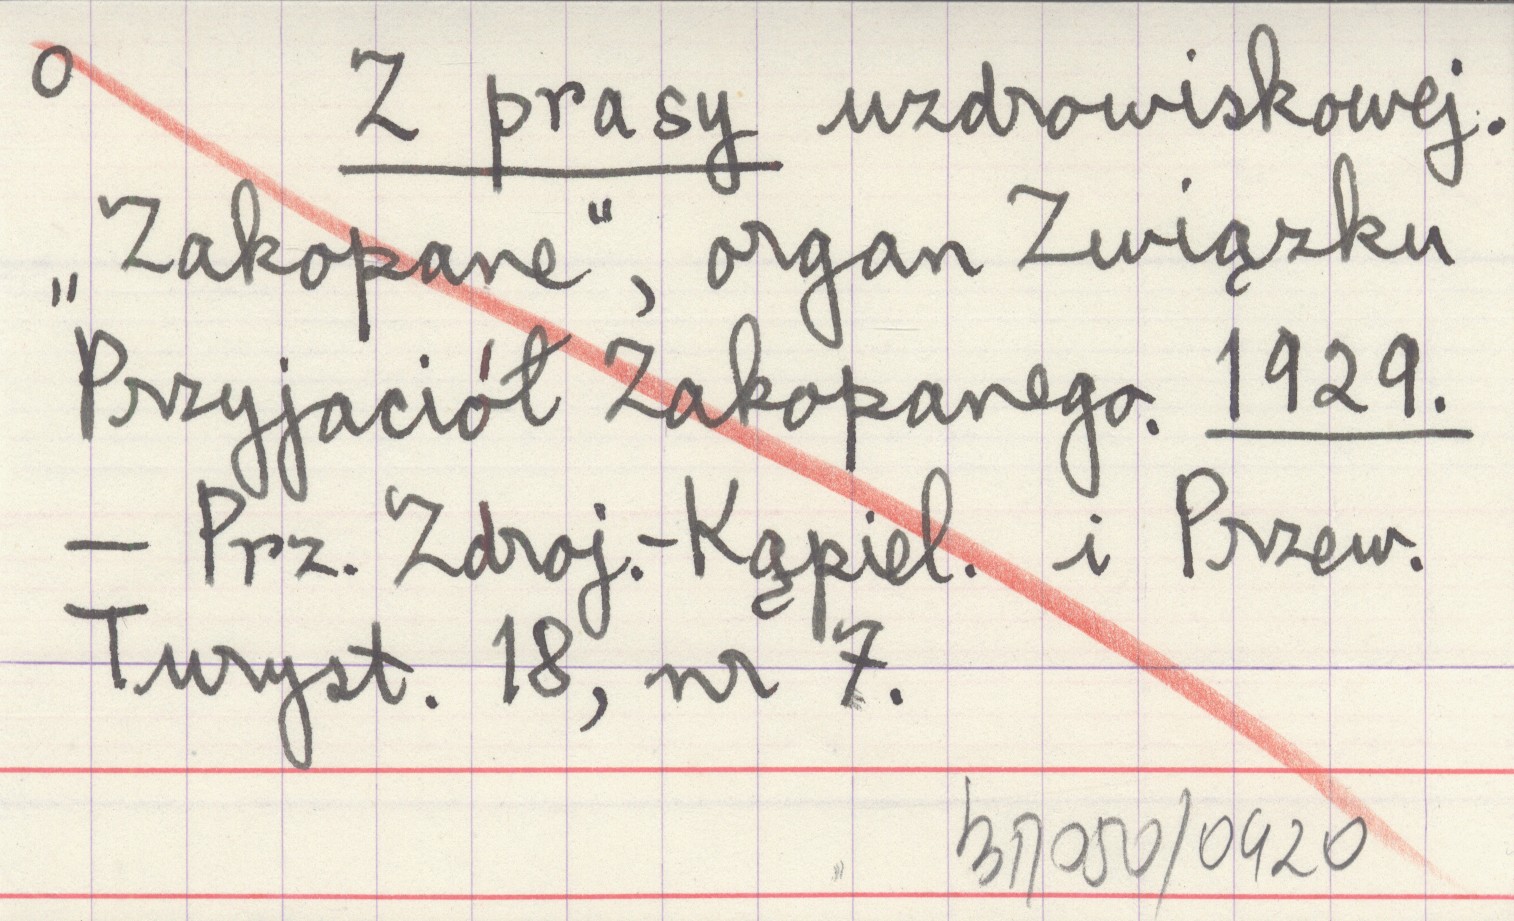 O Z prasy uzdrowiskowej.
„Zakopane“, organ Związku
Przyjaciół Zakopanego. 1929.
— Prz. Zdroj.-Kąpiel. i Przew.
Turyst. 18, nr 7.
050/0920